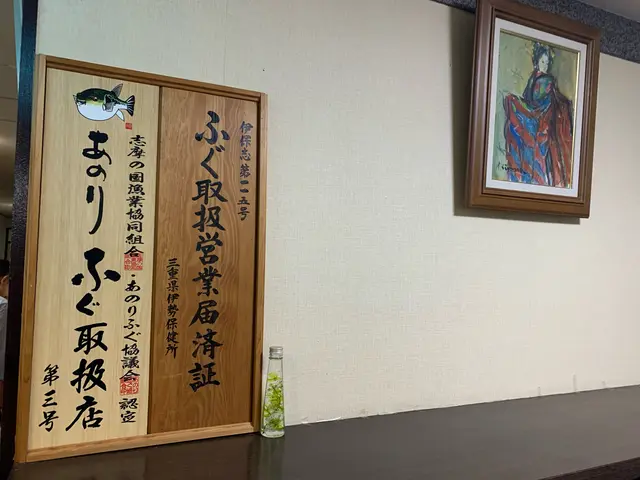 伊保志第一五号
ふぐ取扱営業届済証
三重県伊勢保健所
志摩の国漁業協同組合・あのりふぐ協議会 認定
あのりふぐ取扱店
第三号